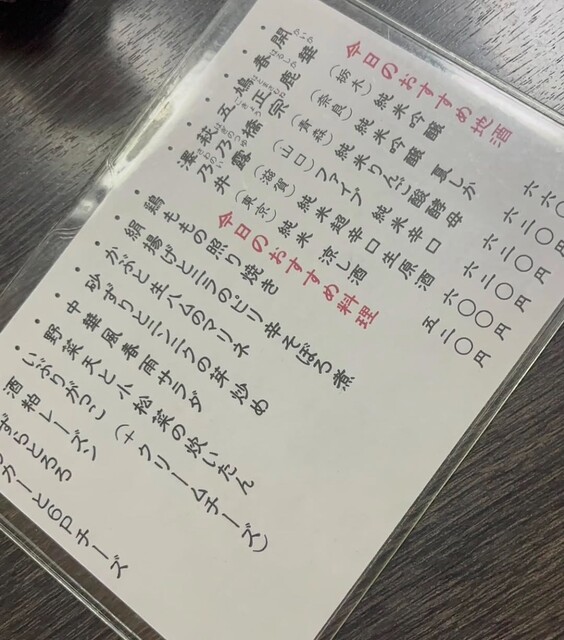 今日のおすすめ地酒
・開華 (栃木) 純米吟醸
・春鹿 (奈良) 純米吟醸 夏しか
・鳩正宗 (青森) 純米りんご酸酵母
・五橋 (山口) ファイブ 純米辛口
・萩乃露 (滋賀) 純米超辛口生原酒 六〇〇円
・澤乃井 (東京) 純米 涼し酒 五二〇円
今日のおすすめ料理
・鶏ももの照り焼き
・絹揚げとニラのピリ辛そぼろ煮
・かぶと生ハムのマリネ
・砂ずりとニンニクの芽炒め
・中華風春雨サラダ
・野菜天と小松菜の炊いたん
・いぶりがっこ (+クリームチーズ)
酒粕レーズン
ずらとろろ
カーと6Pチーズ